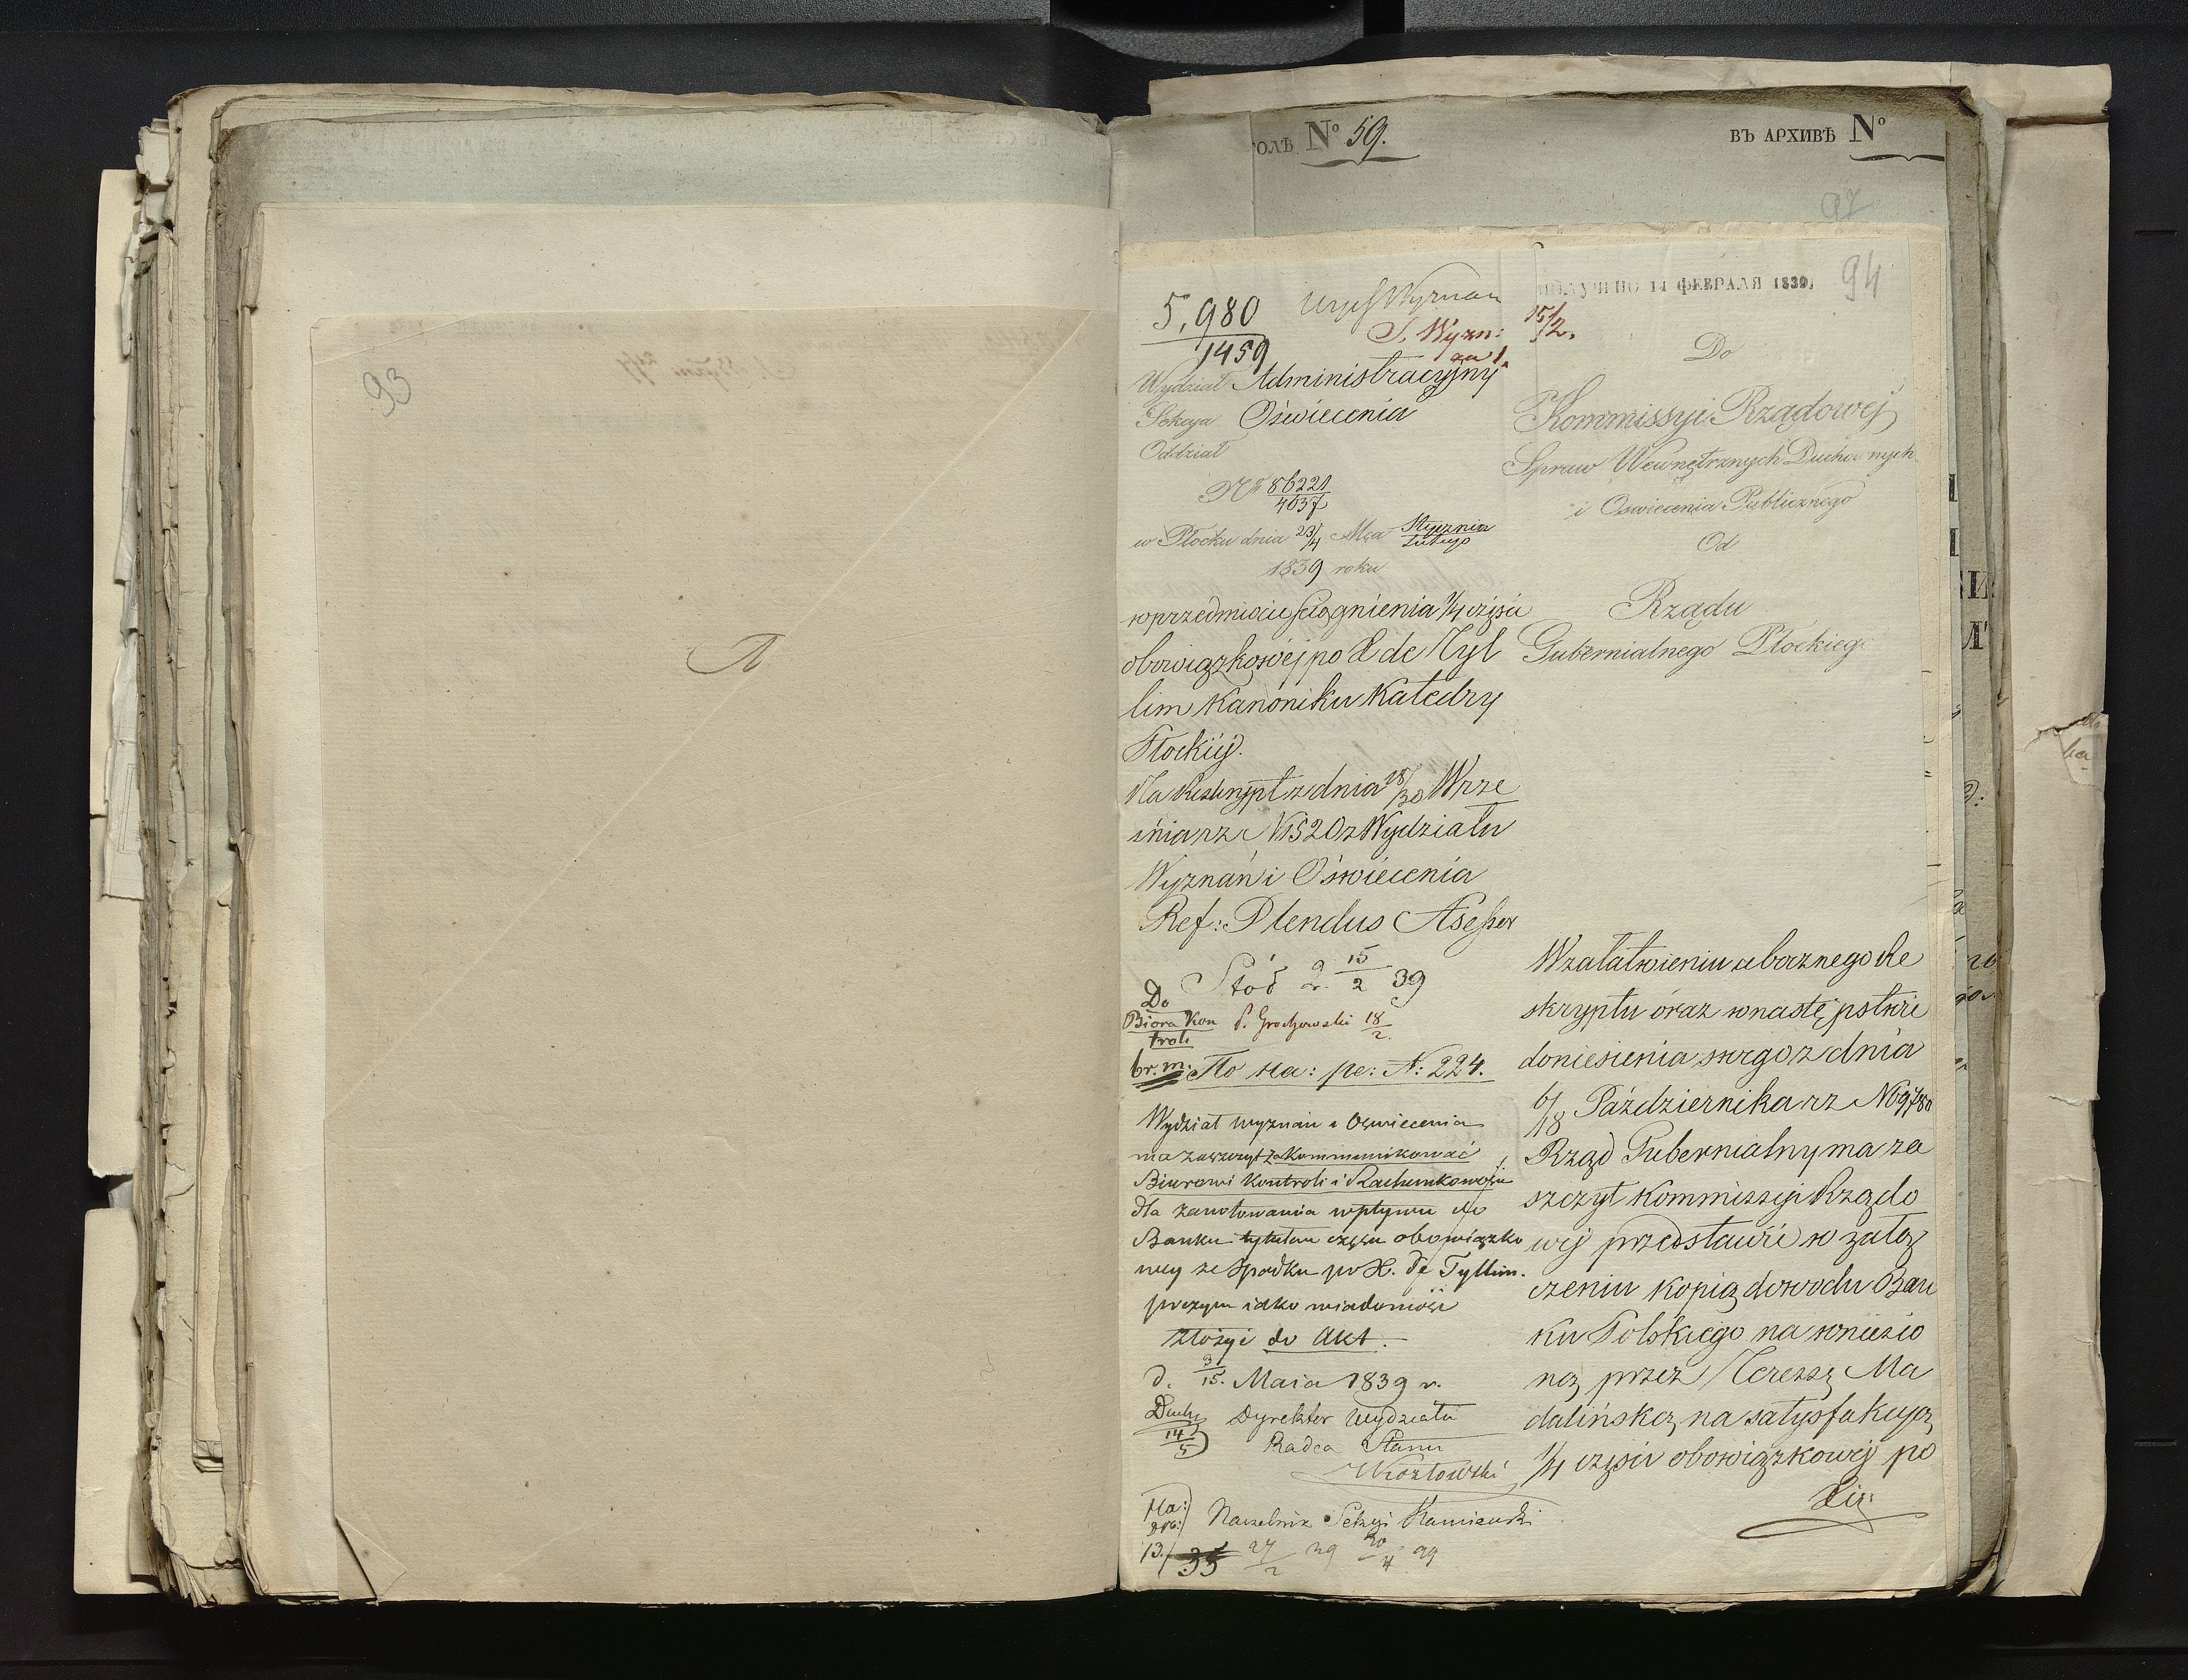 93
ОЛѢ № 59.
ВЪ АРХИВѢ №
97
94
ПОЛУЧЕНО 11 ФЕВРАЛЯ 1839.
5,980
1459
S. Wyzn:
15/2.
Wydział Administracyjny
Sekcja Oświecenia
Oddział
Nr 86221
4637
w Płocku dnia 23/4 Mca Stycznia
Lutego
1839 roku
w przedmiocie ściągnienia 1/4 części
obowiązkowéj po X de Tyl
lim Kanoniku Katedry
Płockiéj.
Na Reskrypt z dnia 18/30 Wrze
śnia rz. N 1520 z Wydziału
Wyznań i Oświecenia
Ref: Plendus Assessor
Do
Kommissyi Rządowej
Spraw Wewnętrznych Duchownych
i Oswiecenia Publicznego
Od
Rządu
Gubernialnego Płockiego
W załatwieniu ubocznego Re
skryptu óraz w następstwie
doniesienia swego z dnia
6/18 Października rz N 69780
Rząd Gubernialny ma za
szczyt Kommissyi Rządo
wej przedstawić w załą
czeniu kopią dowodu Ban
ku Polskiego na wniesio
ną przez Teressę Ma
dalińską na satysfakcyą
1/4 części obowiązkowej po
15
2 39
Do
Biora Kon
troli
P. Grochowski 18/2.
br. m.
N: 224.
Wydział wyznań i Oświecenia
ma zaszczyt zakommunikować
Biurowi Kontroli i Rachunkowości
dla zanotowania wpływu do
Banku tytułem części obowiązko
wey ze Spadku po X. de Tyllim.
poczym iako wiadomość
złożyć do Akt.
d. 3/15. Maia 1839 r.
Dyrektor Wydziału
Radca Stanu
Kozłowski
14
5
Naczelnik Sekcyi Kamiński
13.
35 27/2 39